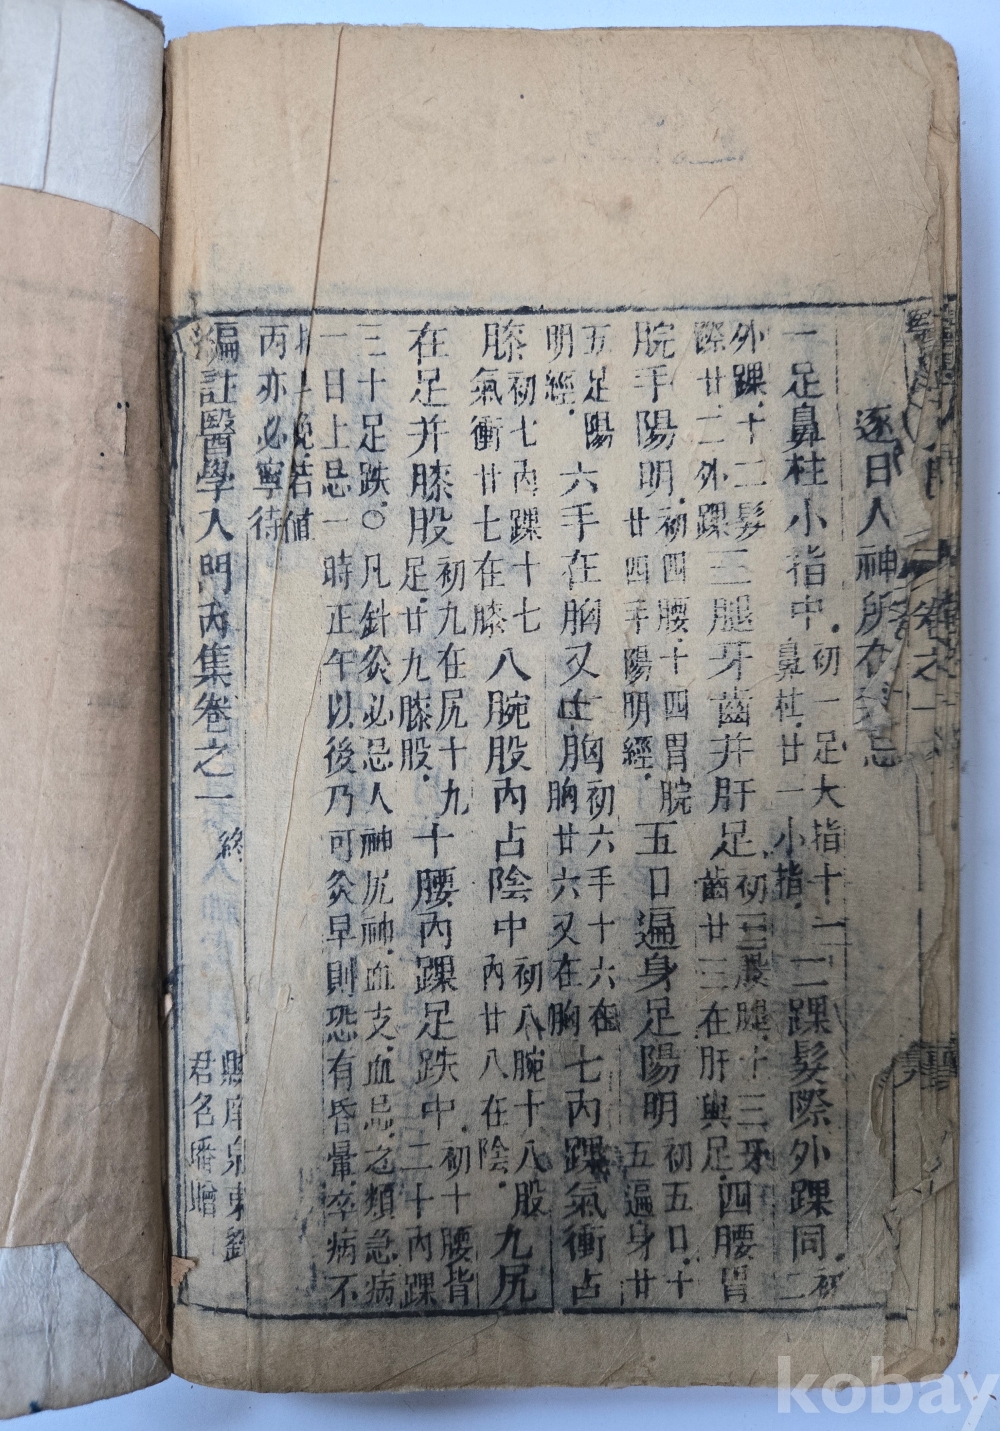 醫學入門 卷之一
逐日人神所在忌
一足鼻柱小指中初一足大指十一鼻柱廿一小指二踝髮際外踝同初二
外踝十二髮際廿二外踝三腿牙齒并肝足初三股腿十三牙齒廿三在肝與足四腰胃
脘手陽明初四腰十四胃脘廿四手陽明經五口遍身足陽明初五口十五遍身廿
五足陽明經六手在胸又占胸初六手十六在胸廿六又在胸七內踝氣衝占
膝初七內踝十七氣衝廿七在膝八腕股內占陰中初八腕十八股內廿八在陰九尻
在足并膝股初九在尻十九足廿九膝股十腰內踝足趺中初十腰背二十內踝
三十足趺○凡針灸必忌人神尻神血支血忌之類急病
一日上忌一時正午以後乃可灸早則恐有昏暈卒病不
晚若值
丙亦必寧待
編註醫學入門內集卷之一終
縣庠泉東劉
君名璠贈
kobay